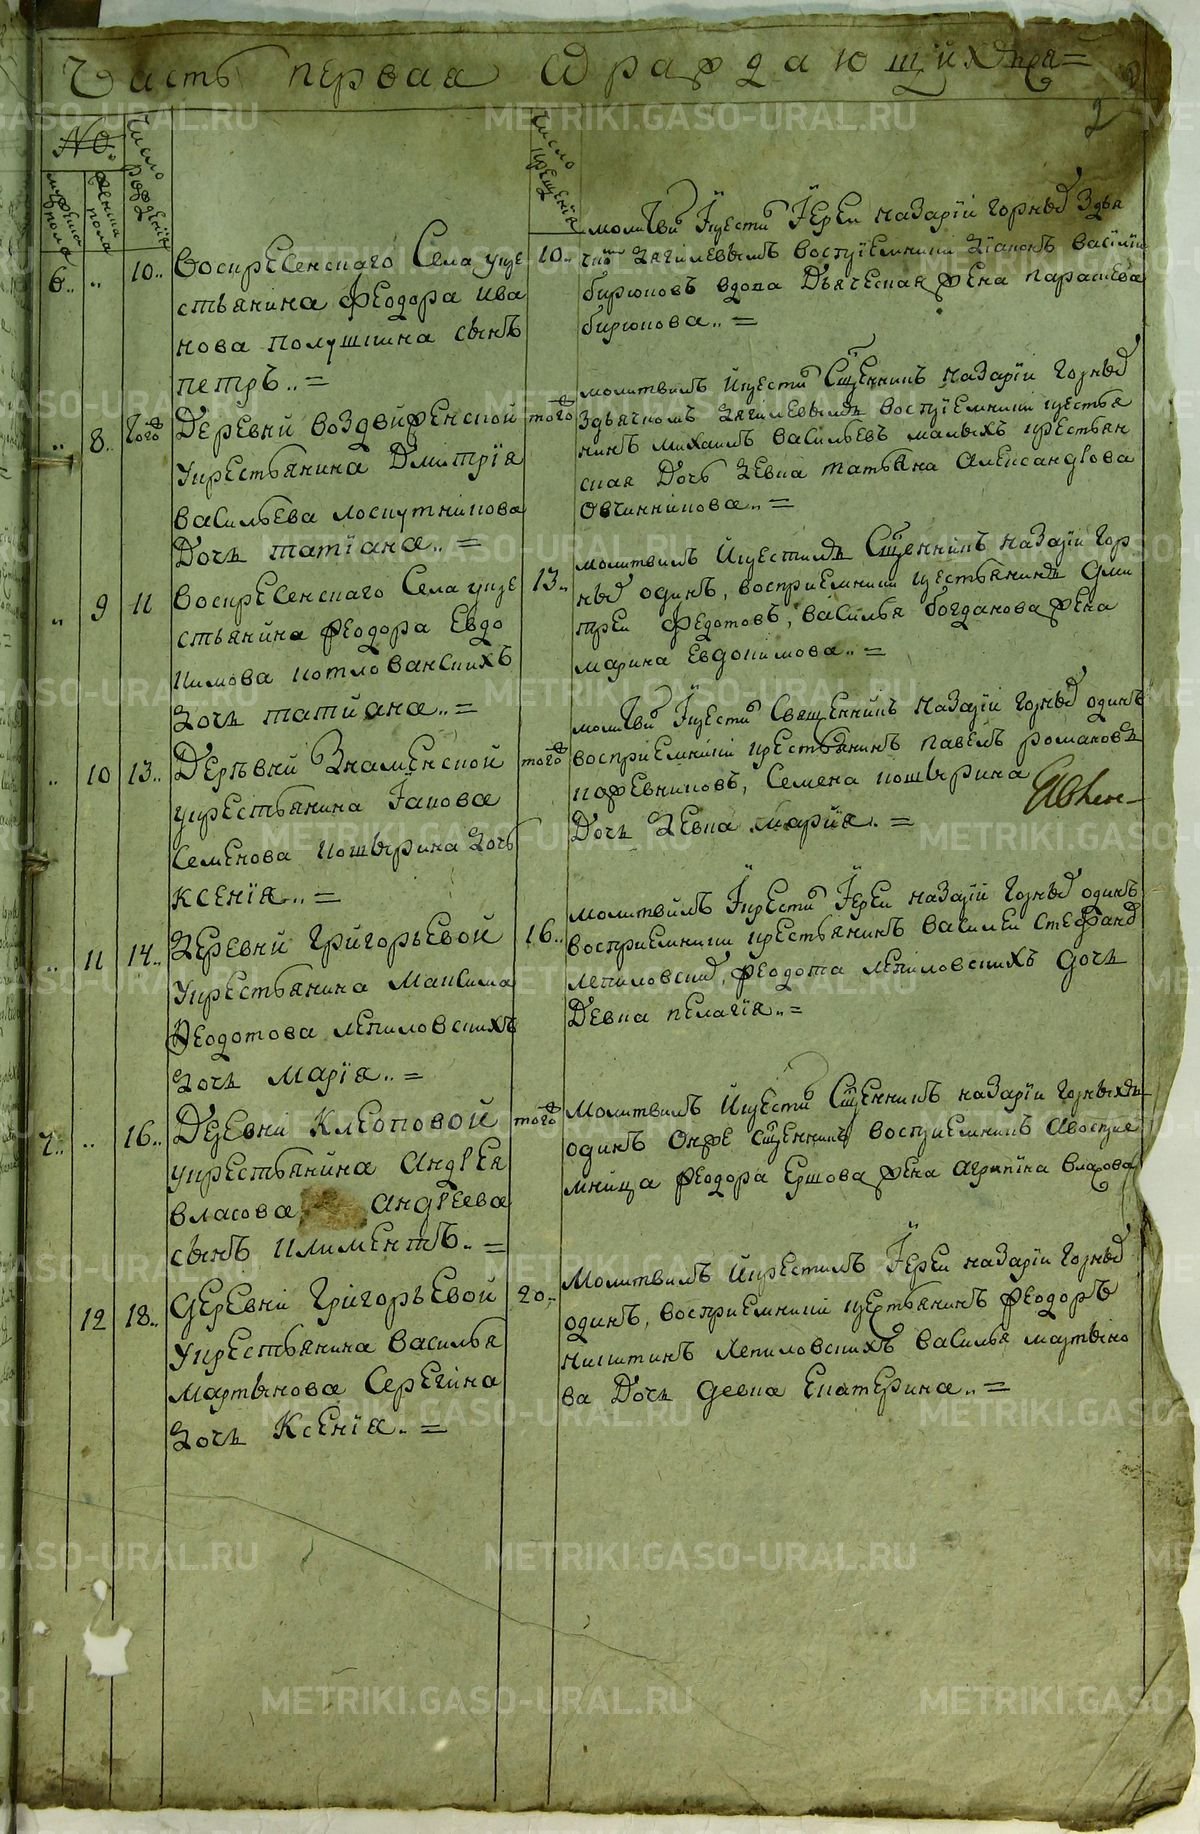 Часть первая О раждающихся=
2
№.
мужеска пола
женска пола
Число рождения
Число крещения
6.. „ 10..
Воскресенскаго Села у кре
стьянина Феодора Ива
нова Полушкина сынъ
петръ..=
10..
молитви и крести Иерей назарiй Горныхъ здья
бирюковъ вдова Дьяческая жена параскева
бирюкова..=
„ 8. того
Деревни воздвиженской
у крестьянина Дмитрiя
васильева лоскутникова
Дочь татiана..=
того
молитвилъ и крести Сщенникъ назарiи Горныхъ
нинъ михаилъ васильевъ малыхъ крестьян
ская Дочь девка татьяна Александрова
Овчинникова..=
„ 9 11
Воскресенскаго Села у кре
стьянина Феодора Евдо
кимова котлованскихъ
дочь татиана..=
13..
молитвилъ и крестилъ Сщенникъ назарiи Гор
ныхъ одинъ, восприемники крестьянинъ Дми
трей Федотовъ, василья богданова жена
марина Евдокимова..=
„ 10 13..
Деревни Знаменской
у крестьянина Iакова
Семенова кошкурина дочь
ксенiя..=
того
молитви и крести Священникъ назарiи Горныхъ одинъ
восприемники крестьянинъ павелъ романовъ
Дочь девка марiя.=
„ 11 14..
деревни Григорьевой
у крестьянина Максима
Феодотова лепиловскихъ
дочь марiя..=
16..
молитвилъ и крести Иерей назарiй Горныхъ одинъ
восприемники крестьянинъ василеи Стефанов
лепиловских, Феодота лепиловскихъ дочь
Девка пелагiя..=
7.. „ 16..
Деревни Клеоповой
у крестьянина Андрея
власова Андреева
сынъ климентъ..=
того
молитвилъ и крести Сщенникъ назарiи Горныхъ
одинъ Онже Сщенникъ восприемникъ Авосприе
мница Феодора Ершова жена агрипiна власова
12 18..
Деревни Григорьевой
у крестьянина василья
мартынова Серегина
дочь Ксенiя.=
20..
молитвилъ и крестилъ Иерей назарiи Горныхъ
одинъ, восприемники крестьянинъ Феодоръ
никитинъ Лепиловскихъ василья мартыно
ва Дочь девка Екатерина..=
METRIKI.GASO-URAL.RU